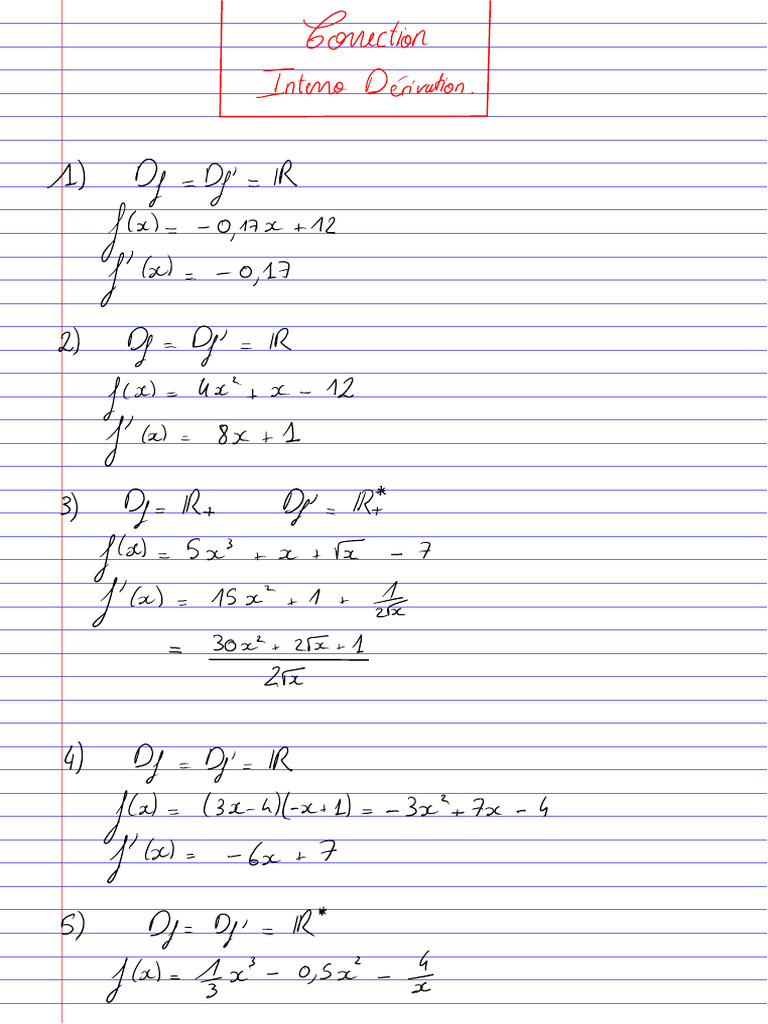 Correction
Interro Dérivation.
1) Df = Df' = ℝ
f(x) = -0,17x + 12
f'(x) = -0,17
2) Df = Df' = ℝ
f(x) = 4x² + x - 12
f'(x) = 8x + 1
3) Df = ℝ₊ Df' = ℝ₊*
f(x) = 5x³ + x + √x - 7
f'(x) = 15x² + 1 + 1/(2√x)
= (30x² + 2√x + 1)/(2√x)
4) Df = Df' = ℝ
f(x) = (3x-4)(-x+1) = -3x² + 7x - 4
f'(x) = -6x + 7
5) Df = Df' = ℝ*
f(x) = 1/3 x³ - 0,5x² - 4/x